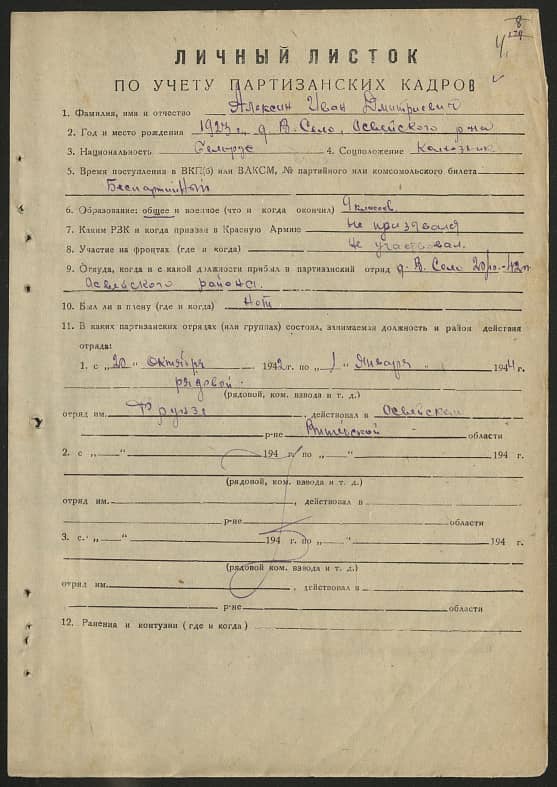 8
179
ЛИЧНЫЙ ЛИСТОК
ПО УЧЕТУ ПАРТИЗАНСКИХ КАДРОВ
1. Фамилия, имя и отчество Алексин Иван Дмитриевич
2. Год и место рождения 1923 г. д. В. Село, Освейского р-на
3. Национальность Белорус 4. Соцположение Колхозник
5. Время поступления в ВКП(б) или ВЛКСМ, № партийного или комсомольского билета
Беспартийный
6. Образование: общее и военное (что и когда окончил) 4 классов.
7. Каким РВК и когда призван в Красную Армию не призывался
8. Участие на фронтах (где и когда) Не участвовал.
9. Откуда, когда и с какой должности прибыл в партизанский отряд д. В. Село 20/10-42 г.
Освейского района.
10. Был ли в плену (где и когда) Нет
11. В каких партизанских отрядах (или группах) состоял, занимаемая должность и район действия
отряда:
1. с „20“ Октября 1942 г. по „1“ Января 1944 г.
рядовой
(рядовой, ком. взвода и т. д.)
отряд им. Фрунзе, действовал в Освейском
р-не Витебской области
2. с „ “ 194 г. по „ “ 194 г.
(рядовой, ком. взвода и т. д.)
отряд им. , действовал в
р-не области
3. с „ “ 194 г. по „ “ 194 г.
(рядовой ком. взвода и т. д.)
отряд им. , действовал в
р-не области
12. Ранения и контузии (где и когда)